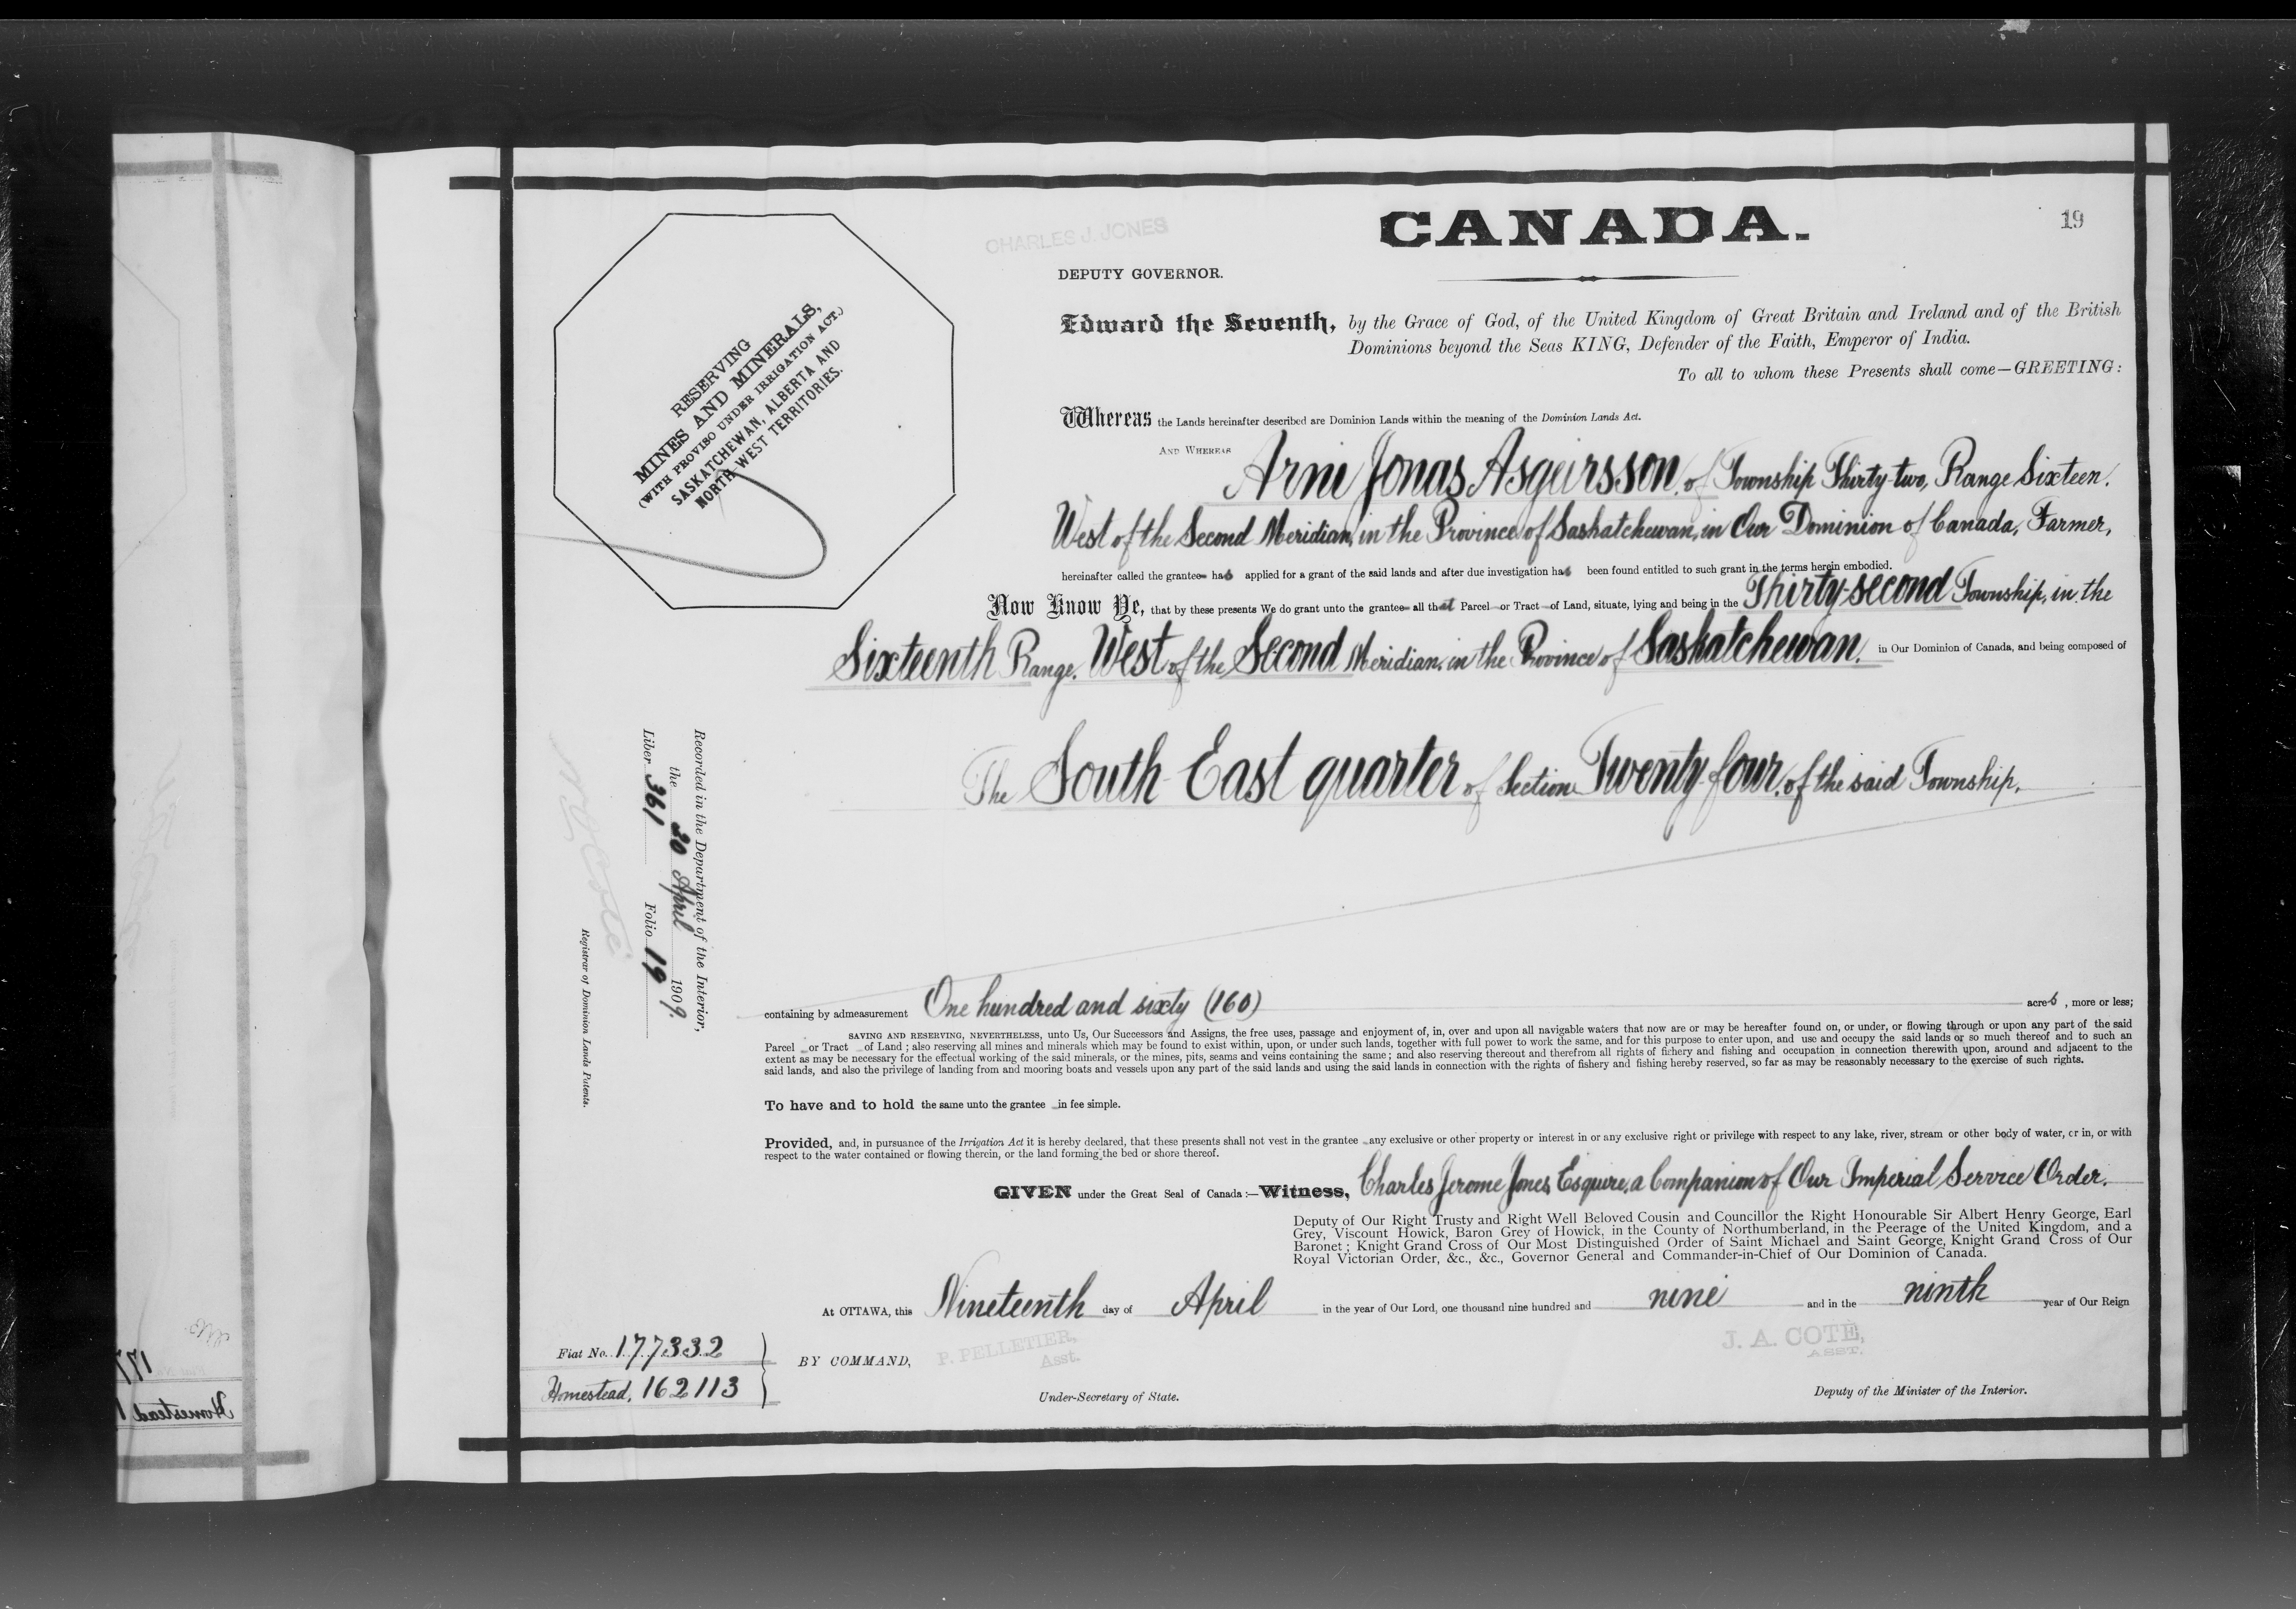 CHARLES J. JONES
CANADA.
19
DEPUTY GOVERNOR.
Edward the Seventh, by the Grace of God, of the United Kingdom of Great Britain and Ireland and of the British
Dominions beyond the Seas KING, Defender of the Faith, Emperor of India.
To all to whom these Presents shall come—GREETING:
RESERVING
MINES AND MINERALS,
(WITH PROVISO UNDER IRRIGATION ACT.)
SASKATCHEWAN, ALBERTA AND
NORTH WEST TERRITORIES.
Whereas the Lands hereinafter described are Dominion Lands within the meaning of the Dominion Lands Act.
AND WHEREAS Arni Jonas Asgeirsson, of Township Thirty-two, Range Sixteen,
West of the Second Meridian, in the Province of Saskatchewan, in Our Dominion of Canada, Farmer,
hereinafter called the grantee has applied for a grant of the said lands and after due investigation has been found entitled to such grant in the terms herein embodied.
Now Know Ye, that by these presents We do grant unto the grantee all that Parcel or Tract of Land, situate, lying and being in the Thirty-second Township, in the
Sixteenth Range, West of the Second Meridian, in the Province of Saskatchewan, in Our Dominion of Canada, and being composed of
The South East quarter of Section Twenty-four, of the said Township,
containing by admeasurement One hundred and sixty (160) acres, more or less;
SAVING AND RESERVING, NEVERTHELESS, unto Us, Our Successors and Assigns, the free uses, passage and enjoyment of, in, over and upon all navigable waters that now are or may be hereafter found on, or under, or flowing through or upon any part of the said
Parcel or Tract of Land; also reserving all mines and minerals which may be found to exist within, upon, or under such lands, together with full power to work the same, and for this purpose to enter upon, and use and occupy the said lands or so much thereof and to such an
extent as may be necessary for the effectual working of the said minerals, or the mines, pits, seams and veins containing the same; and also reserving thereout and therefrom all rights of fishery and fishing and occupation in connection therewith upon, around and adjacent to the
said lands, and also the privilege of landing from and mooring boats and vessels upon any part of the said lands and using the said lands in connection with the rights of fishery and fishing hereby reserved, so far as may be reasonably necessary to the exercise of such rights.
To have and to hold the same unto the grantee in fee simple.
Provided, and, in pursuance of the Irrigation Act it is hereby declared, that these presents shall not vest in the grantee any exclusive or other property or interest in or any exclusive right or privilege with respect to any lake, river, stream or other body of water, or in, or with
respect to the water contained or flowing therein, or the land forming the bed or shore thereof.
GIVEN under the Great Seal of Canada:—Witness, Charles Jerome Jones, Esquire, a Companion of Our Imperial Service Order.
Deputy of Our Right Trusty and Right Well Beloved Cousin and Councillor the Right Honourable Sir Albert Henry George, Earl
Grey, Viscount Howick, Baron Grey of Howick, in the County of Northumberland, in the Peerage of the United Kingdom, and a
Baronet; Knight Grand Cross of Our Most Distinguished Order of Saint Michael and Saint George, Knight Grand Cross of Our
Royal Victorian Order, &c., &c., Governor General and Commander-in-Chief of Our Dominion of Canada.
At OTTAWA, this Nineteenth day of April in the year of Our Lord, one thousand nine hundred and nine and in the ninth year of Our Reign
BY COMMAND,
P. PELLETIER,
Asst.
Under-Secretary of State.
J. A. COTÉ,
ASST.
Deputy of the Minister of the Interior.
Fiat No. 177332
Homestead, 162113
Recorded in the Department of the Interior,
the 20 April 1909,
Liber 361 Folio 19
Registrar of Dominion Lands Patents.
177
Homestead 1